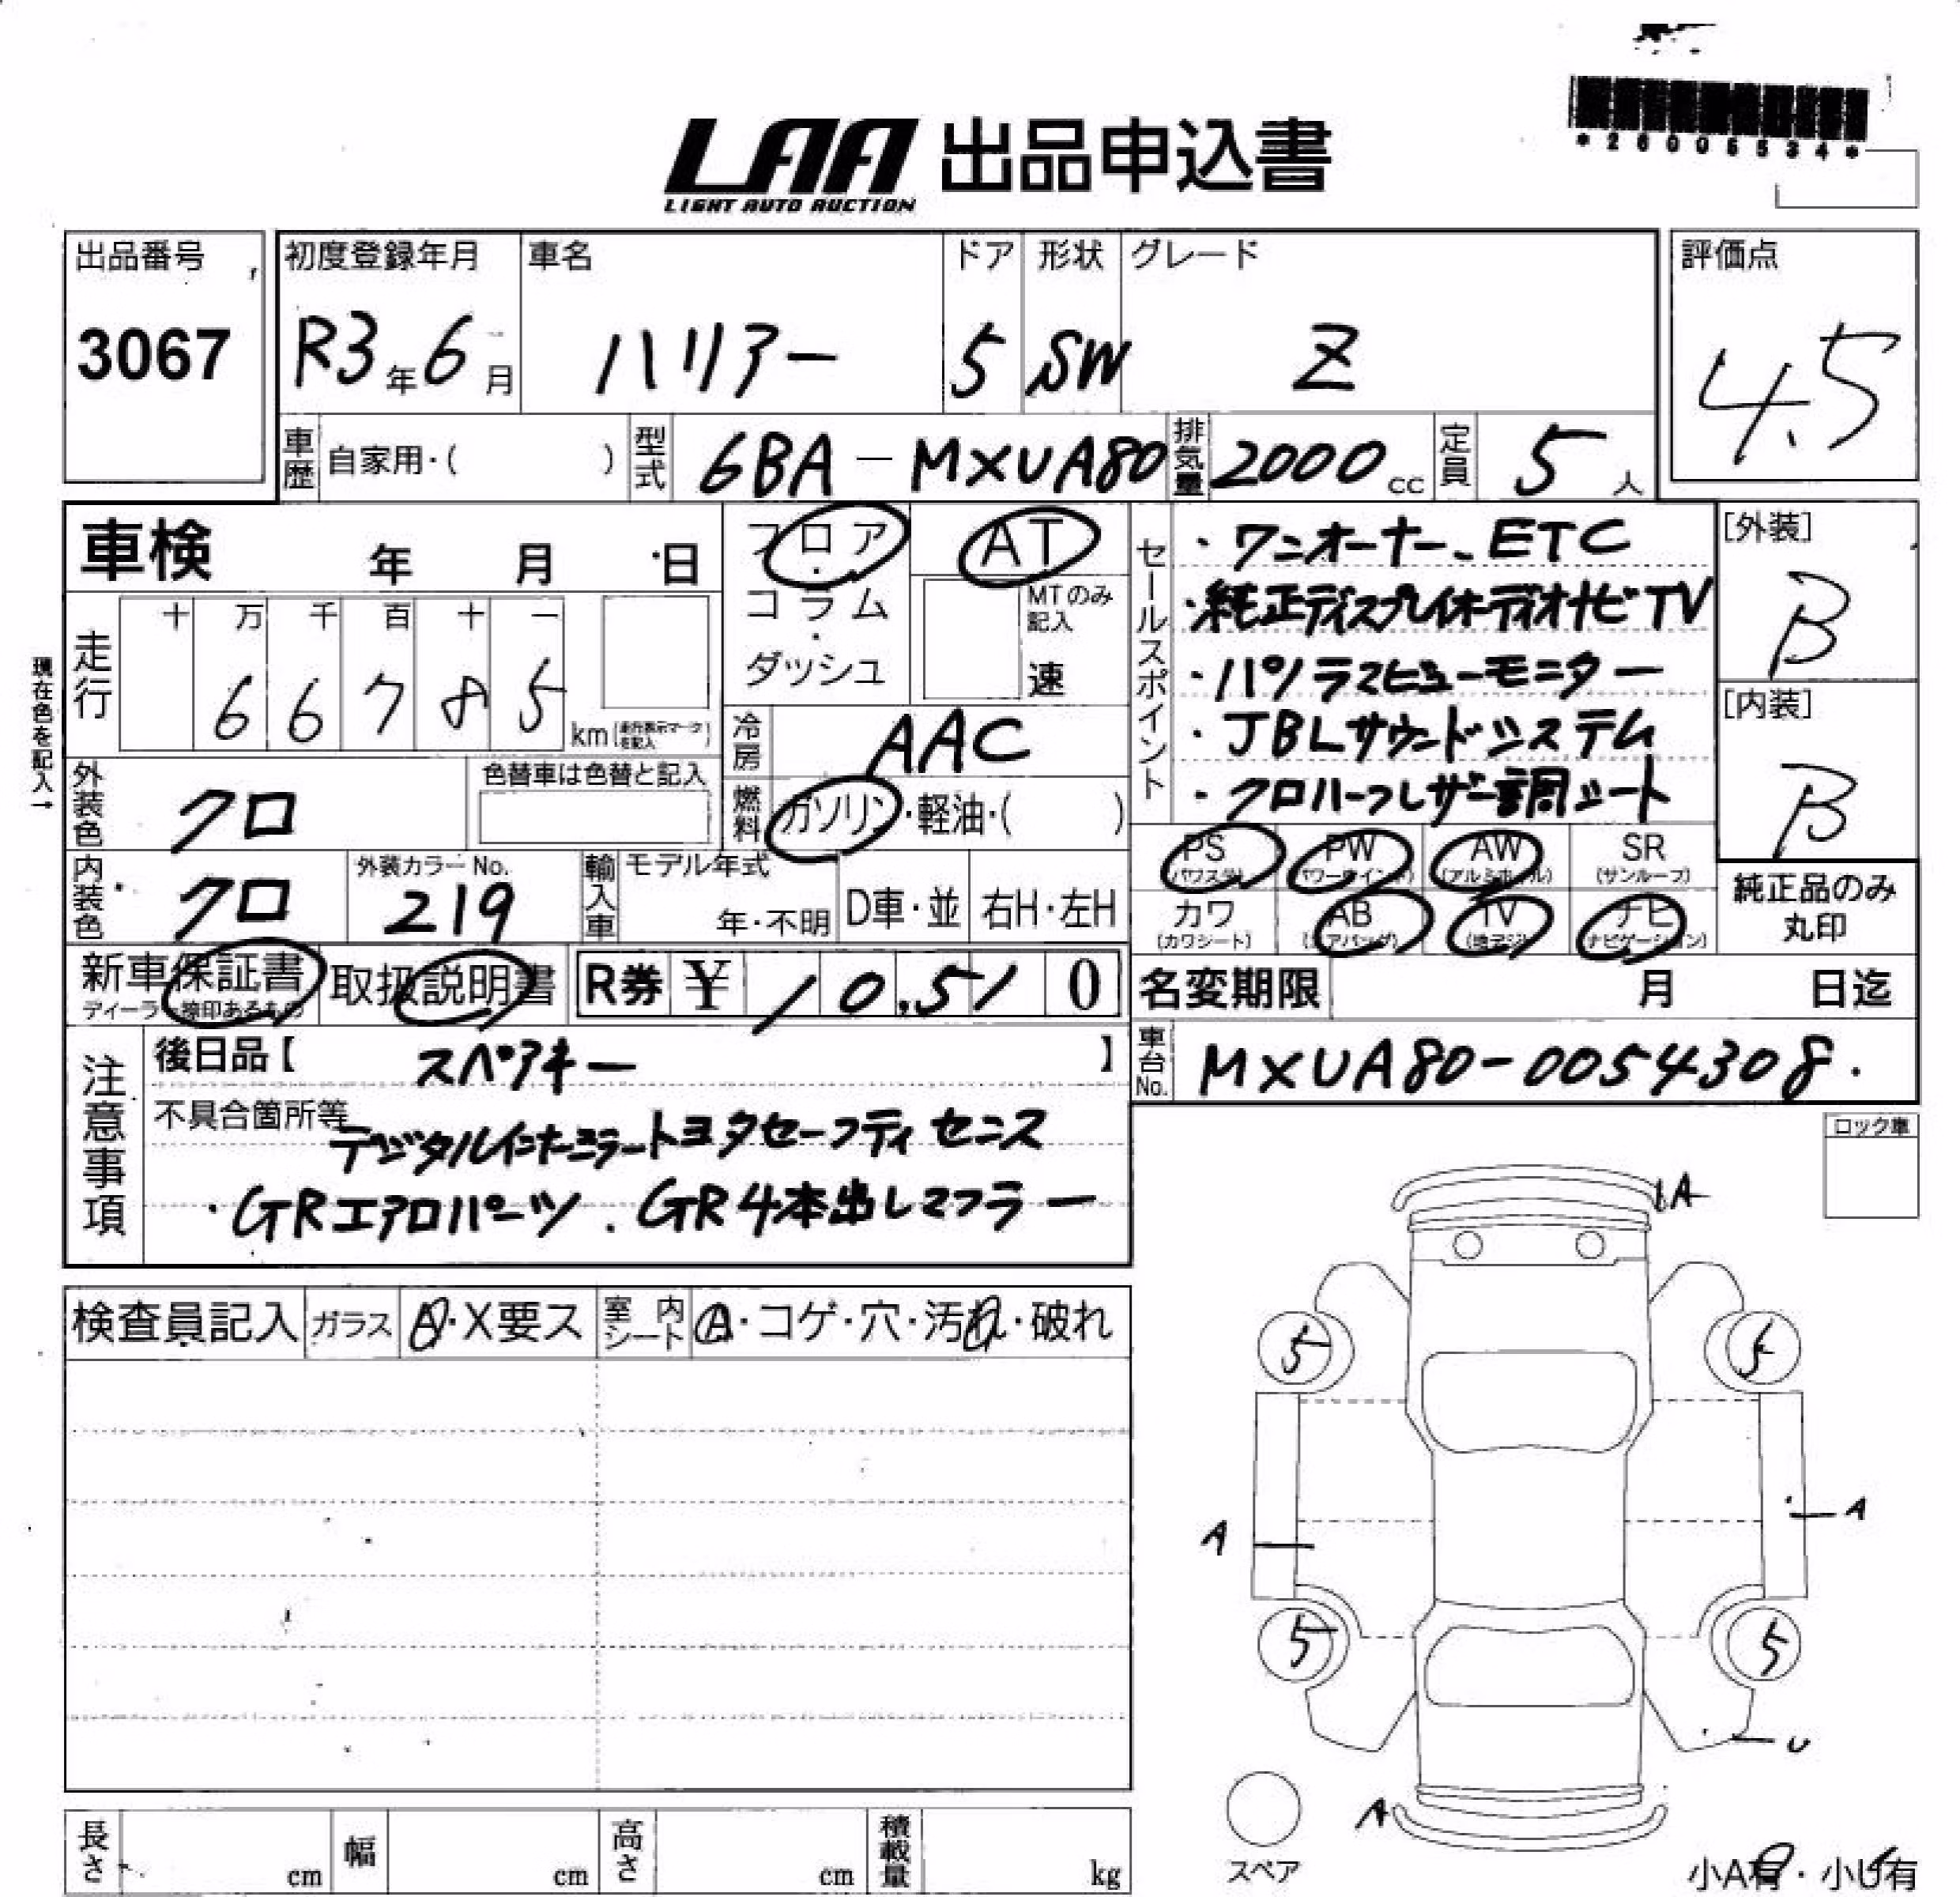 *26005534*
LAA 出品申込書
LIGHT AUTO AUCTION
出品番号 初度登録年月 車名 ドア 形状 グレード 評価点
3067 R3年6月 ハリアー 5 SW Z 4.5
車歴 自家用・( ) 型式 6BA-MXUA80 排気量 2000cc 定員 5人
車検 年 月 日 フロア・コラム・ダッシュ AT
MTのみ記入 速
現在色を記入→
走行 十 万 千 百 十 一
6 6 7 8 5 km(走行表示マークを記入)
冷房 AAC
外装色 クロ 色替車は色替と記入
燃料 ガソリン・軽油・( )
セールスポイント
・ワンオーナー、ETC
・純正ディスプレイオーディオナビTV
・パノラマビューモニター
・JBLサウンドシステム
・クロハーフレザー調シート
[外装] B
[内装] B
内装色 クロ 外装カラーNo. 219 輸入車 モデル年式 年・不明 D車・並 右H・左H
PS (パワステ) PW (パワーウインド) AW (アルミホイル) SR (サンルーフ)
カワ (カワシート) AB (エアバッグ) TV (地デジ) ナビ (ナビゲーション)
純正品のみ
丸印
新車保証書 取扱説明書 R券 ¥ 10,510
ディーラー捺印あるもの
名変期限 月 日迄
車台No. MXUA80-0054308
注意事項
後日品【 スペアキー 】
不具合箇所等
デジタルインナーミラー トヨタセーフティセンス
・GRエアロパーツ、GR4本出しマフラー
ロック車
検査員記入 ガラス A・X要ス 室内シート A・コゲ・穴・汚れ・破れ
A
5 5
A A
5 5
U
A
スペア
小A有・小U有
長さ cm 幅 cm 高さ cm 積載量 kg